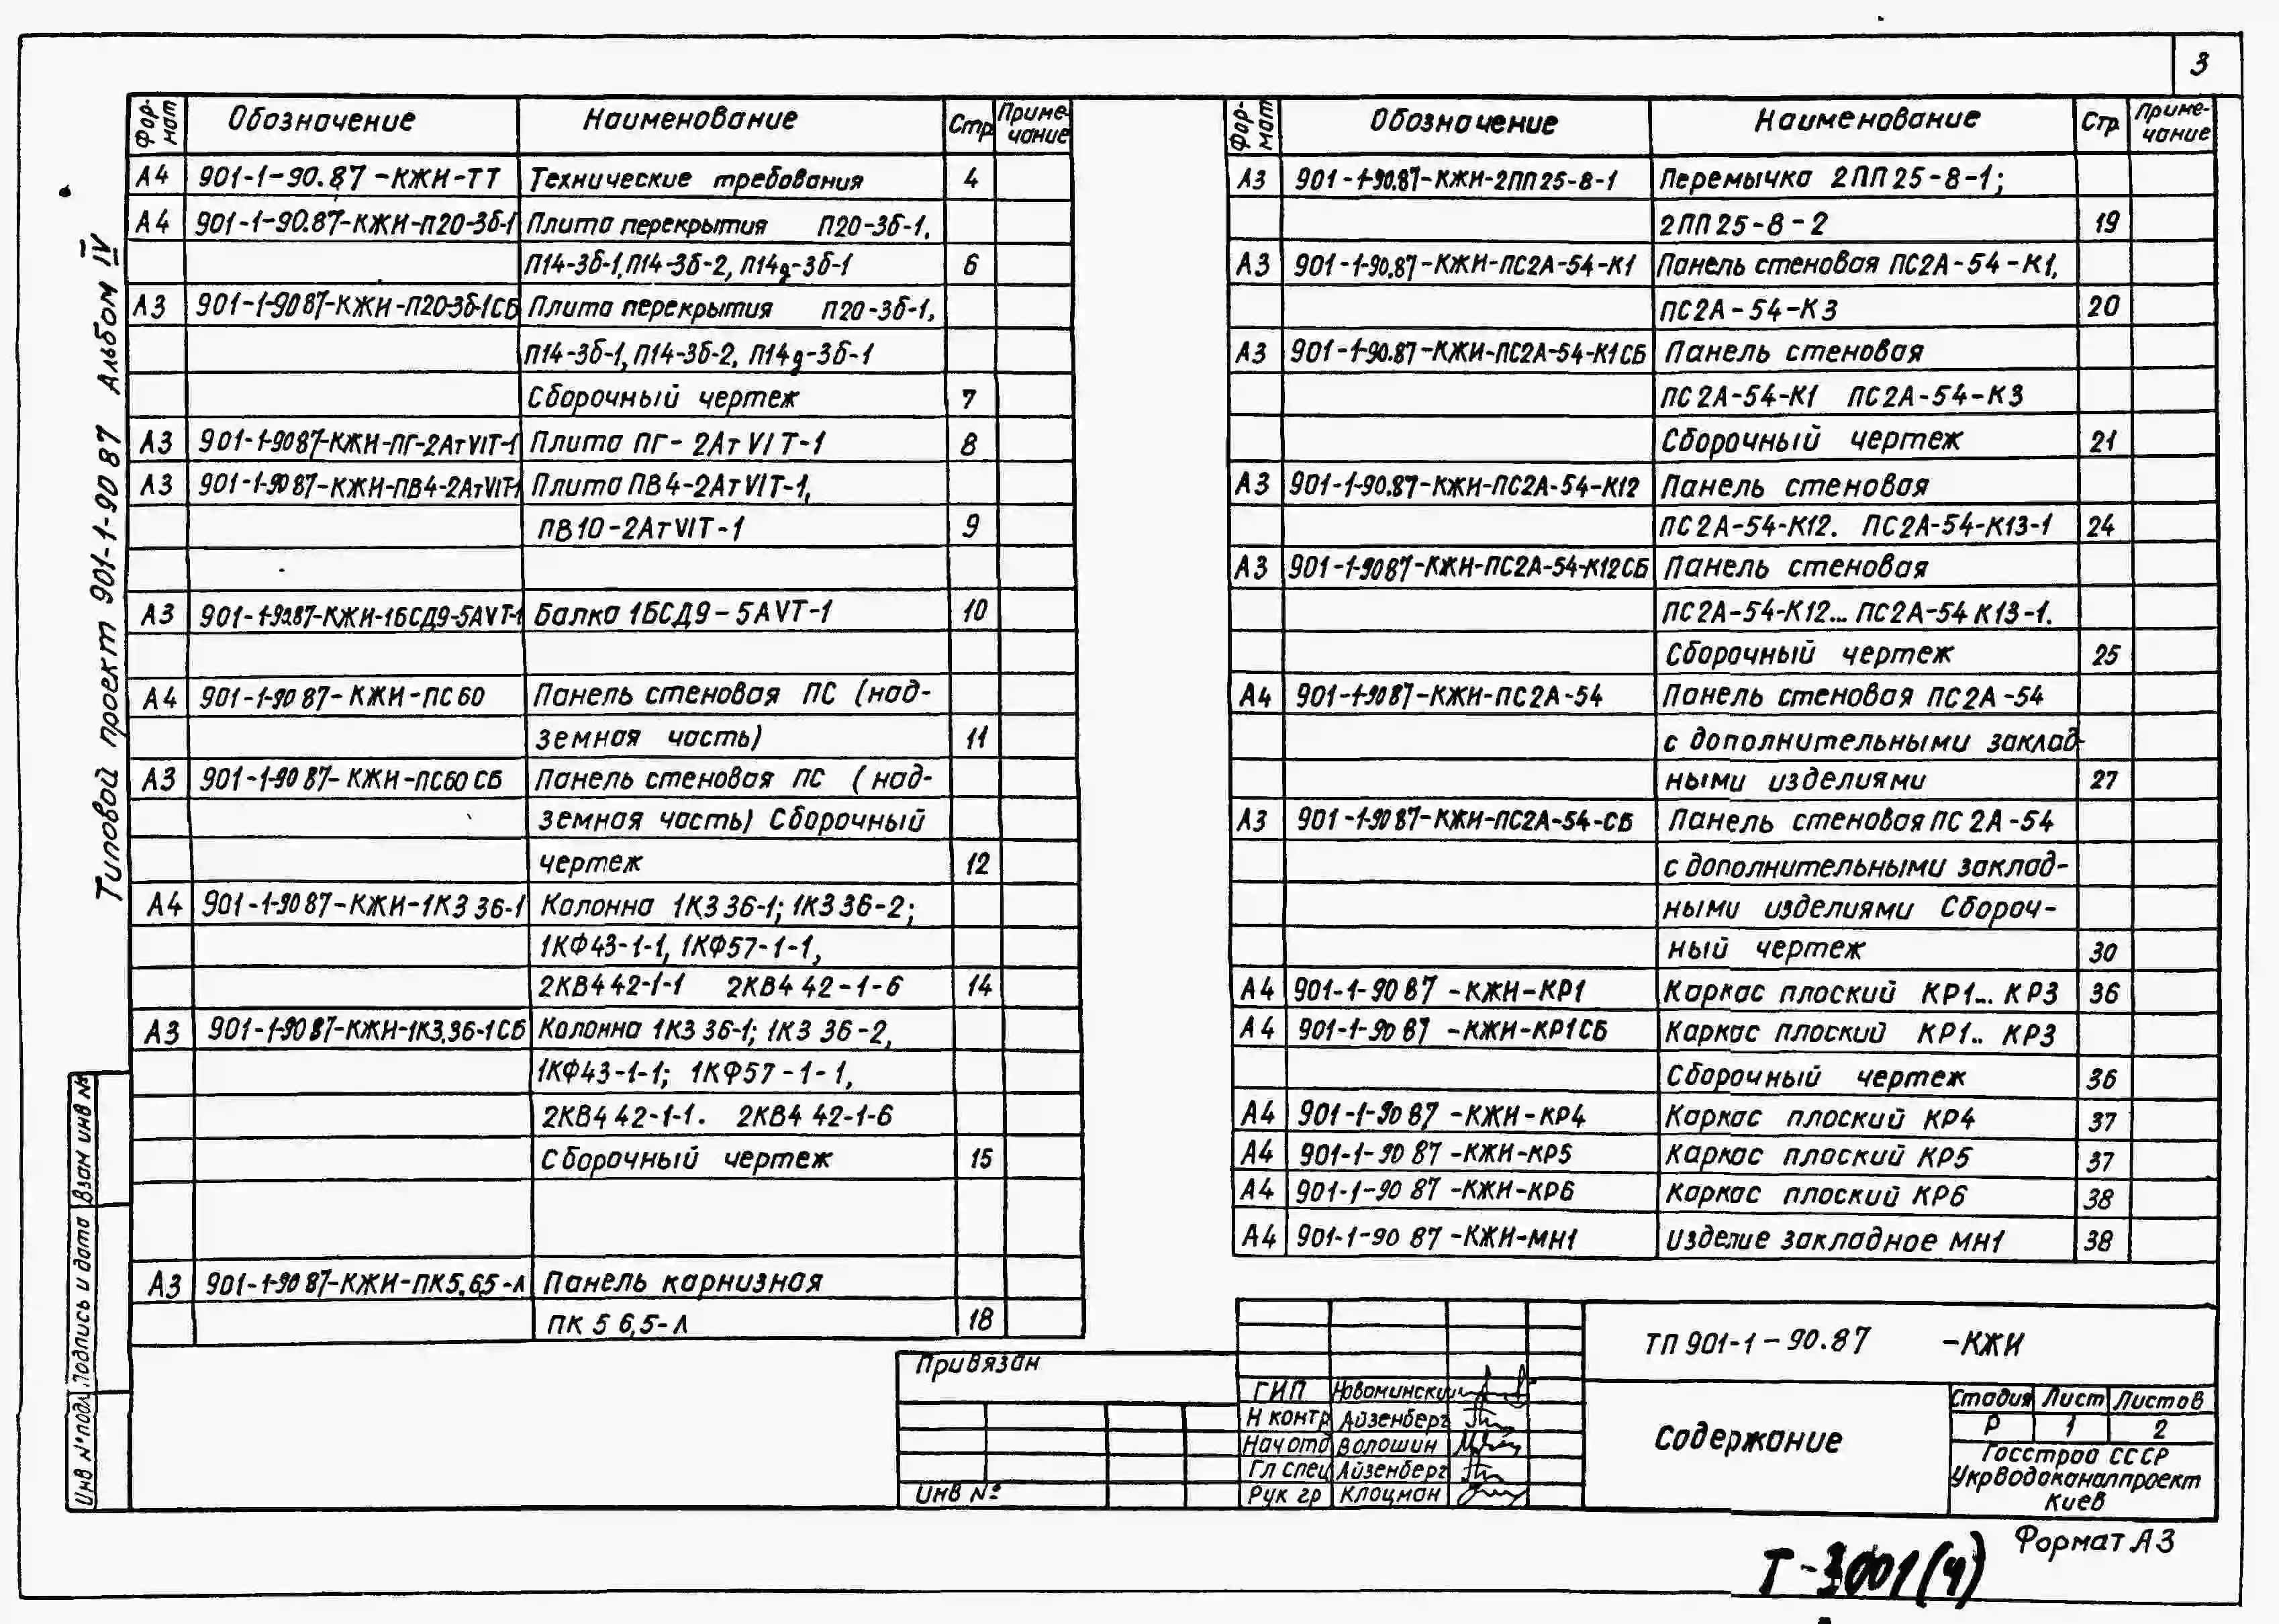 3
Типовой проект 901-1-90 87 Альбом IV
Фор-мат Обозначение Наименование Стр Приме-чание
А4 901-1-90.87-КЖИ-ТТ Технические требования 4
А4 901-1-90.87-КЖИ-П20-3б-1 Плита перекрытия П20-3б-1,
П14-3б-1, П14-3б-2, П14д-3б-1 6
А3 901-1-90 87-КЖИ-П20-3б-1СБ Плита перекрытия П20-3б-1,
П14-3б-1, П14-3б-2, П14д-3б-1
Сборочный чертеж 7
А3 901-1-90 87-КЖИ-ПГ-2АтVIТ-1 Плита ПГ-2АтVIТ-1 8
А3 901-1-90 87-КЖИ-ПВ4-2АтVIТ-1 Плита ПВ4-2АтVIТ-1,
ПВ10-2АтVIТ-1 9
А3 901-1-90.87-КЖИ-1БСД9-5АVТ-1 Балка 1БСД9-5АVТ-1 10
А4 901-1-90 87-КЖИ-ПС60 Панель стеновая ПС (над-
земная часть) 11
А3 901-1-90 87-КЖИ-ПС60 СБ Панель стеновая ПС (над-
земная часть) Сборочный
чертеж 12
А4 901-1-90 87-КЖИ-1К3 36-1 Колонна 1К3 36-1; 1К3 36-2;
1КФ43-1-1, 1КФ57-1-1,
2КВ4 42-1-1 2КВ4 42-1-6 14
А3 901-1-90 87-КЖИ-1К3.36-1СБ Колонна 1К3 36-1; 1К3 36-2,
1КФ43-1-1; 1КФ57-1-1,
2КВ4 42-1-1. 2КВ4 42-1-6
Сборочный чертеж 15
А3 901-1-90 87-КЖИ-ПК5.6,5-Л Панель карнизная
ПК 5 6,5-Л 18
Фор-мат Обозначение Наименование Стр Приме-чание
А3 901-1-90.87-КЖИ-2ПП25-8-1 Перемычка 2ПП25-8-1;
2ПП25-8-2 19
А3 901-1-90.87-КЖИ-ПС2А-54-К1 Панель стеновая ПС2А-54-К1,
ПС2А-54-К3 20
А3 901-1-90.87-КЖИ-ПС2А-54-К1СБ Панель стеновая
ПС2А-54-К1 ПС2А-54-К3
Сборочный чертеж 21
А3 901-1-90.87-КЖИ-ПС2А-54-К12 Панель стеновая
ПС2А-54-К12. ПС2А-54-К13-1 24
А3 901-1-90 87-КЖИ-ПС2А-54-К12СБ Панель стеновая
ПС2А-54-К12... ПС2А-54 К13-1.
Сборочный чертеж 25
А4 901-1-90 87-КЖИ-ПС2А-54 Панель стеновая ПС2А-54
с дополнительными заклад-
ными изделиями 27
А3 901-1-90 87-КЖИ-ПС2А-54-СБ Панель стеновая ПС 2А-54
с дополнительными заклад-
ными изделиями Сбороч-
ный чертеж 30
А4 901-1-90 87 -КЖИ-КР1 Каркас плоский КР1... КР3 36
А4 901-1-90 87 -КЖИ-КР1СБ Каркас плоский КР1.. КР3
Сборочный чертеж 36
А4 901-1-90 87 -КЖИ-КР4 Каркас плоский КР4 37
А4 901-1-90 87 -КЖИ-КР5 Каркас плоский КР5 37
А4 901-1-90 87 -КЖИ-КР6 Каркас плоский КР6 38
А4 901-1-90 87 -КЖИ-МН1 изделие закладное МН1 38
Взам инв №
Подпись и дата
Инв № подл
Привязан
Инв №
ГИП Новоминский
Н контр Айзенберг
Нач отд Волошин
Гл спец Айзенберг
Рук гр Клоцман
ТП 901-1-90.87 -КЖИ
Содержание
Стадия Лист Листов
Р 1 2
Госстрой СССР
Укрводоканалпроект
Киев
Формат А3
Т-3001(4)